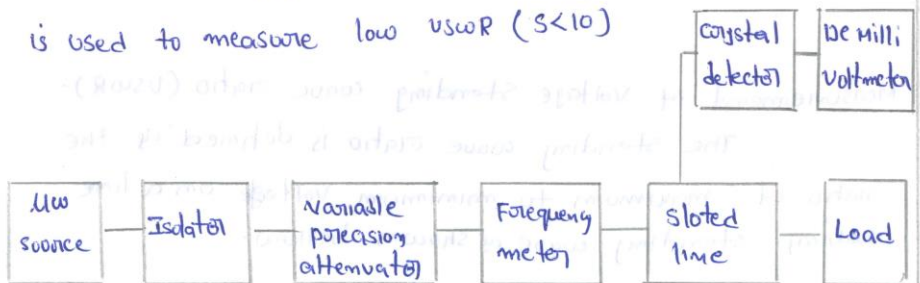 is used to measure low VSWR (S<10)
Crystal
detector
DC Milli
Voltmeter
MW
source
Isolator
Variable
precision
attenuator
Frequency
meter
Sloted
line
Load